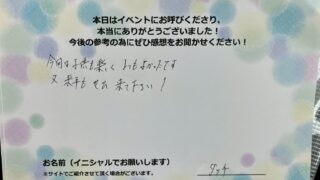 本日はイベントにお呼びくださり、
本当にありがとうございました！
今後の参考の為にぜひ感想をお聞かせください！
今回は子供も楽しく とてもよかったです
又 来年も ぜひ 来て下さい！
お名前（イニシャルでお願いします）
※サイトでご紹介させて頂く場合がございます。